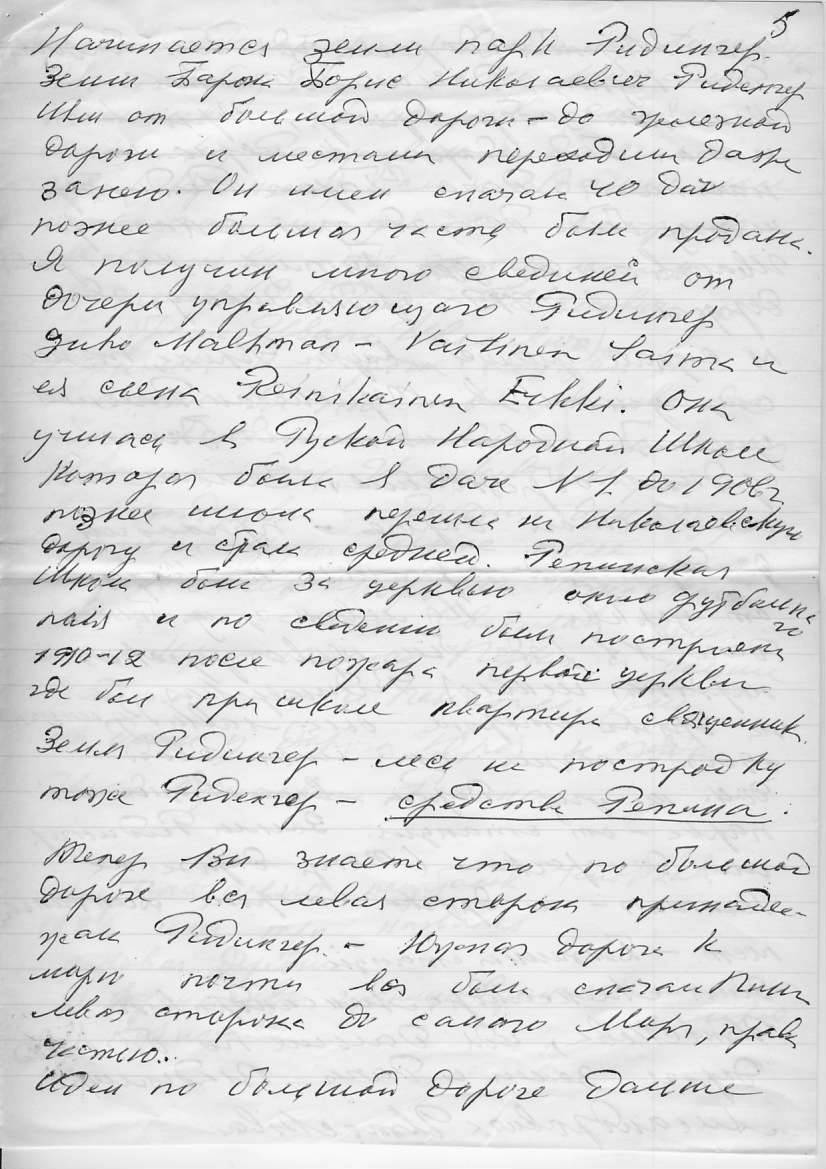 5
Начинается земли парк Ридингер.
Земли Барона Борис Николаевич Ридингер
шли от большой дороги – до железной
дороги и местами переходили даже
за нею. Он имел сначала 40 дач
позже большая часть были продана.
Я получил много сведений от
дочери управляющаго Ридингер
Juho Malkman – Vartinen Saima и
ея сына Reinikainen Erkki. Она
училась в Руской Народной Школе
Которая была в даче N 1. до 1906 г
позже школа перешла на Николаевскую
дорогу и стала средней. Репинская
Школа была за церквью около футбольнаго
поля и по сведению была построена
1910-12 после пожара первой церкви
где был при школе квартира священник.
Земля Ридингер – леса на постройку
тоже Ридингер – средства Репина.
Тепер Вы знаете что по большой
дороге вся левая сторона принадле-
жала Ридингер. – Южная дорога к
морю почти вся была сначала
левая сторона до самого Моря, права
частью..
Идем по большой дороге дальше